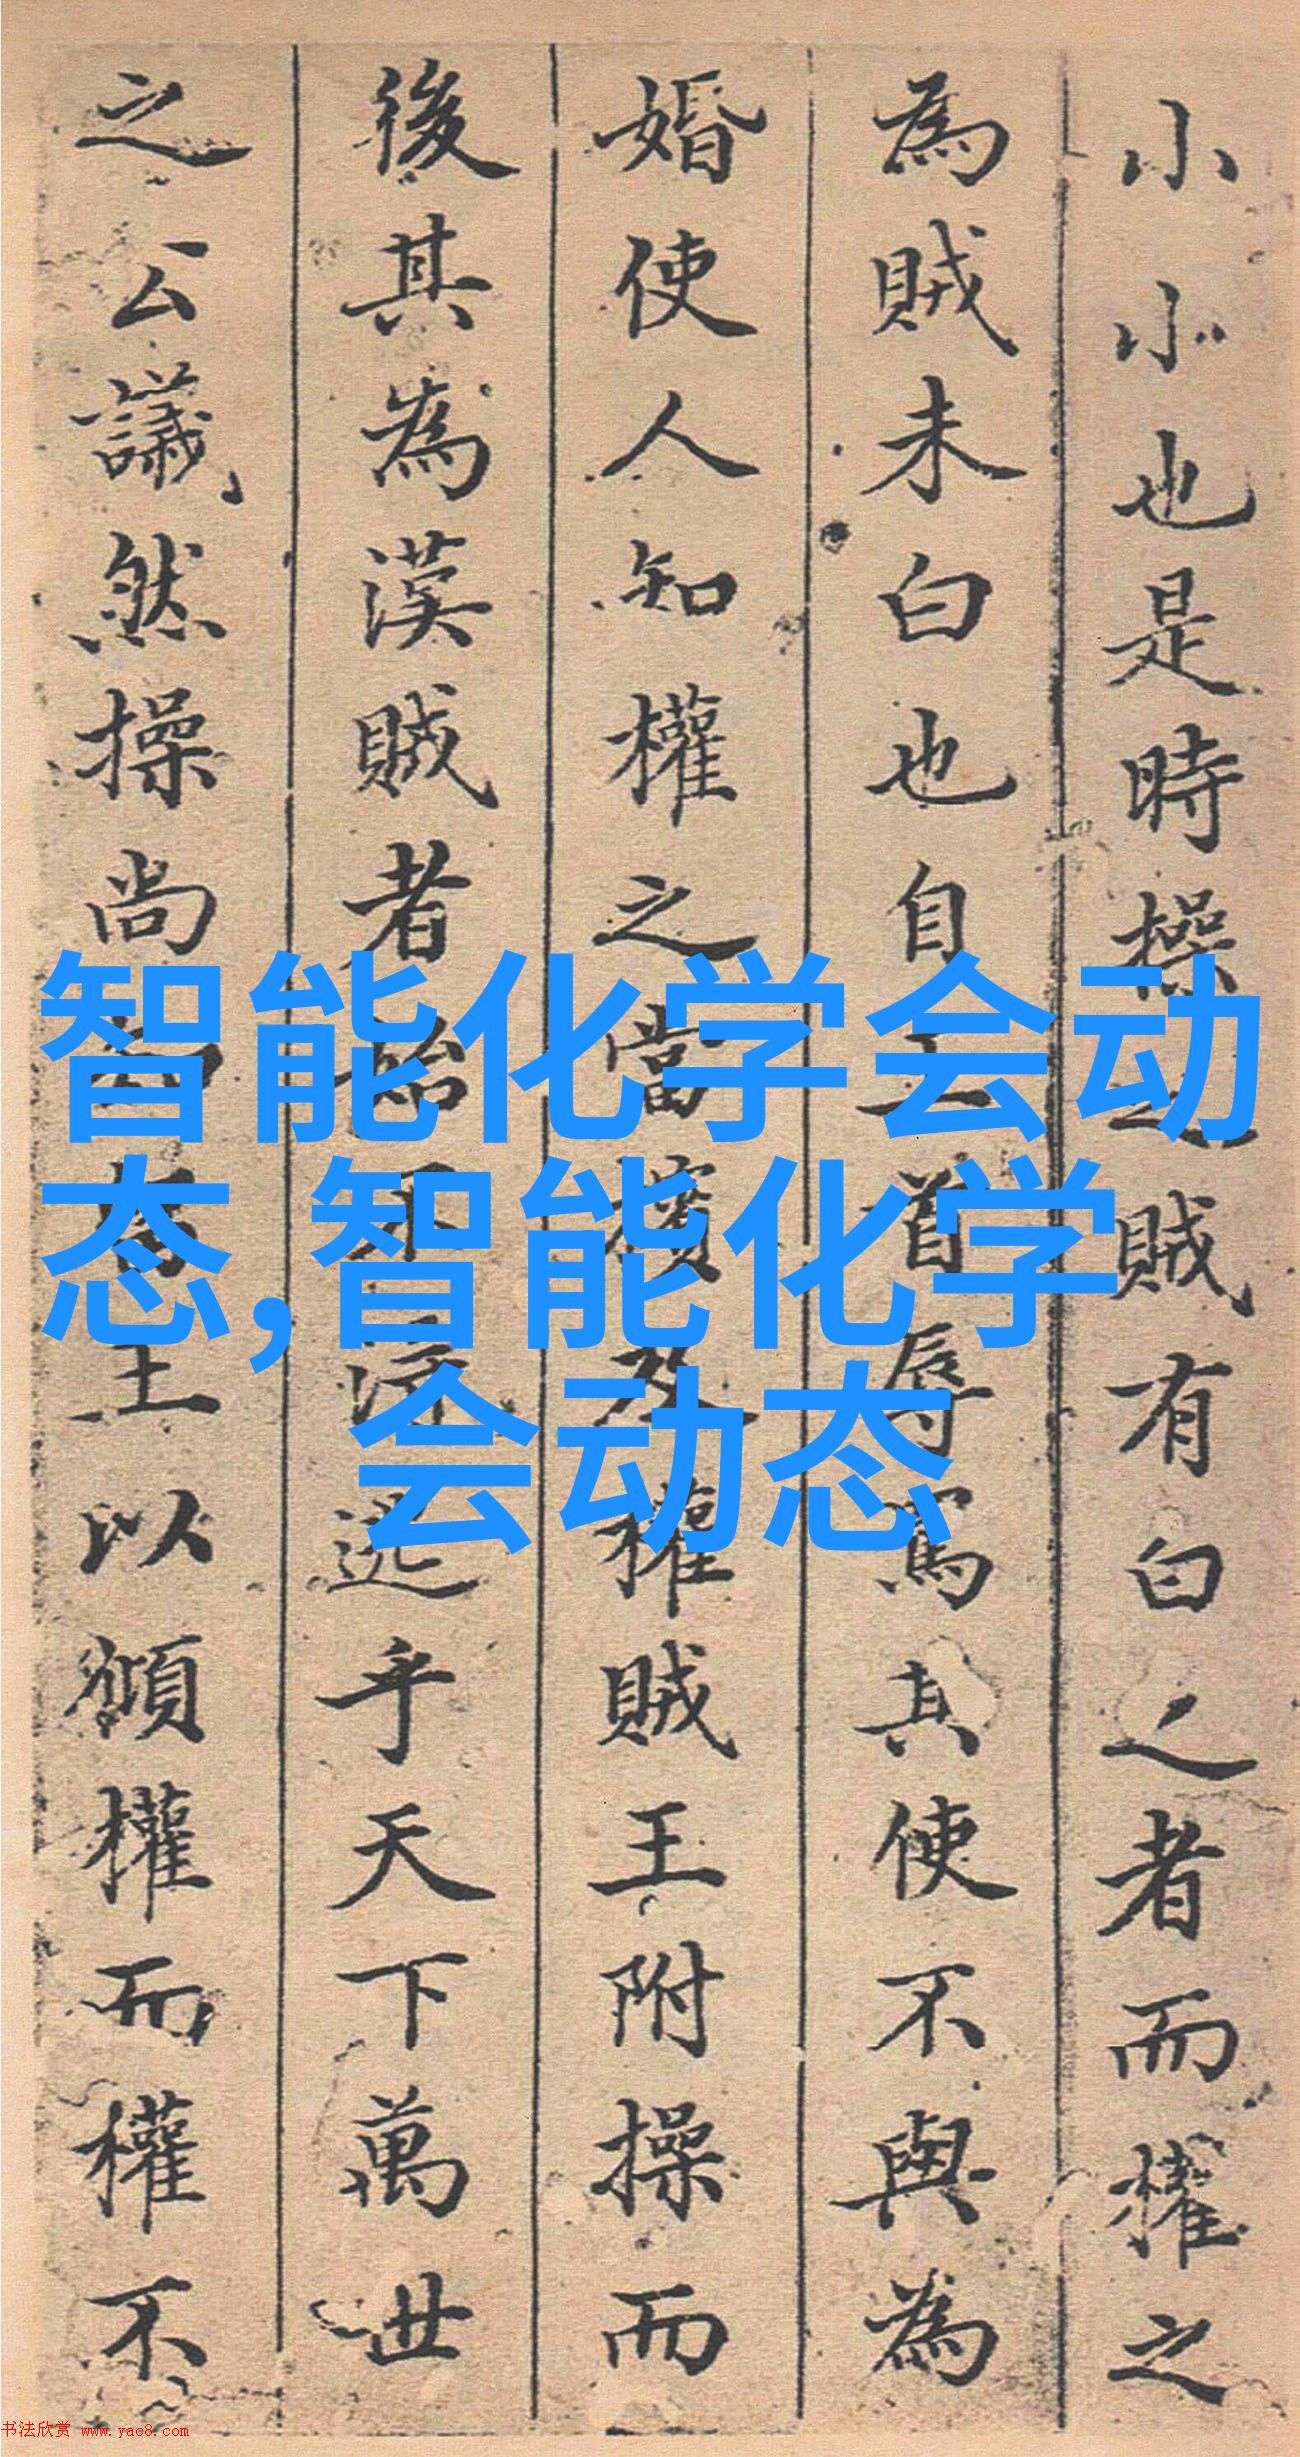 小小也是時操之賊有白之者而權之
為賊未白也自上首辱罵其使不與為
婚使人知權之當擯及權賊王附操而
後其為漢賊者始不深远乎天下萬世
之公議然操尚知王以頒權而權不
智能化学会动
态,智能化学
会动态
书法欣赏 www.yac8.com